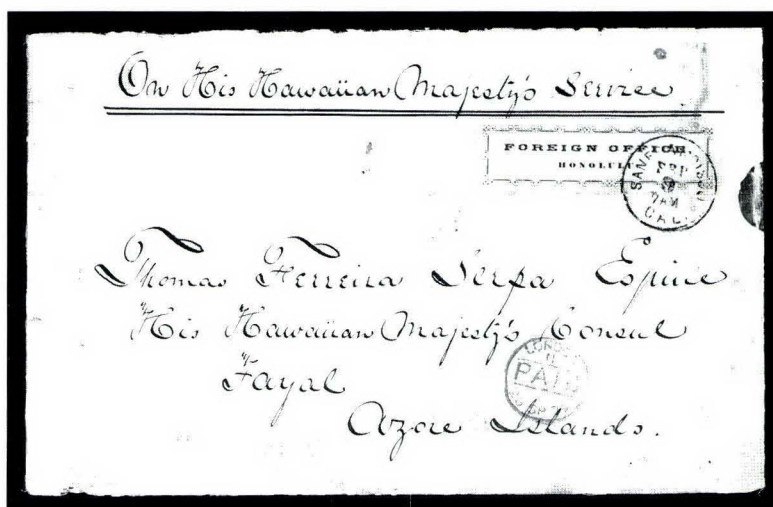 On His Hawaiian Majesty's Service
FOREIGN OFFICE
HONOLULU
SAN FRANCISCO
7 AM
CAL.
Thomas Ferreira Serpa Espine
His Hawaiian Majesty's Consul
Fayal
Azore Islands.
LONDON
PAID